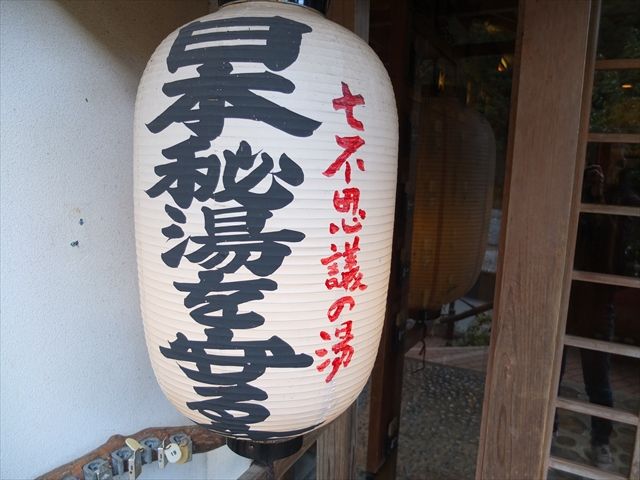 七不思議の湯
日本秘湯を守る